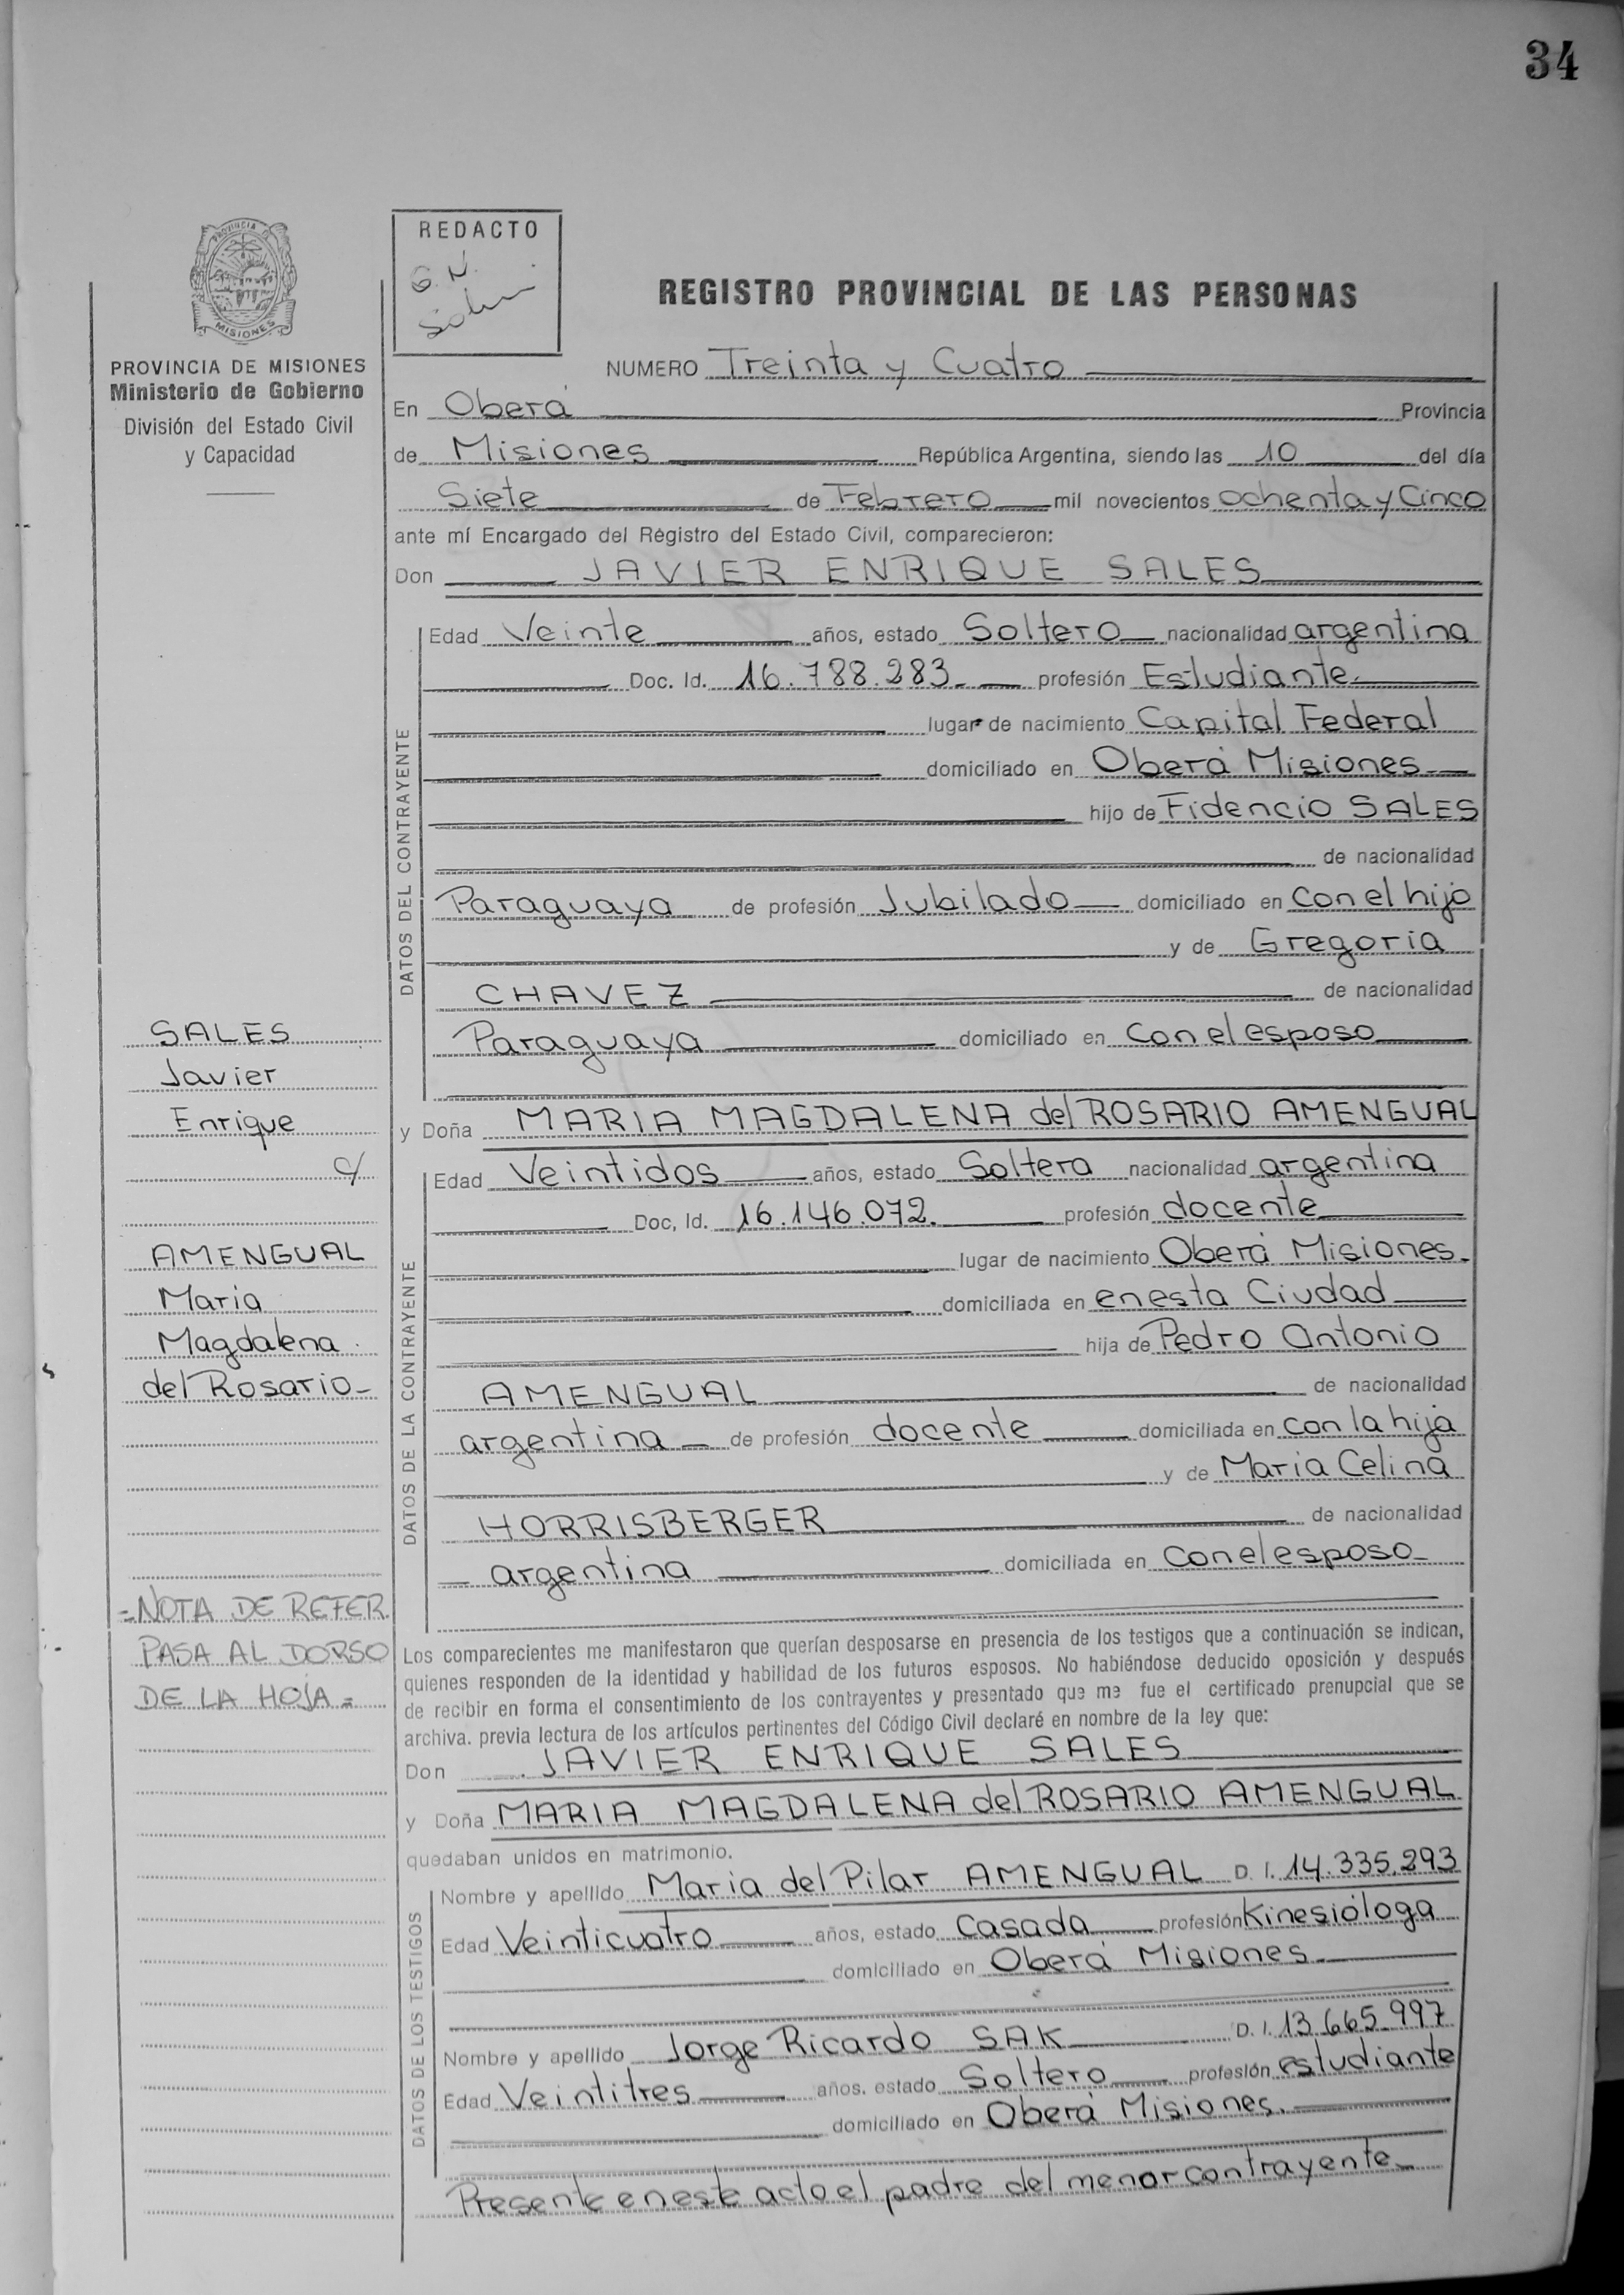 34
PROVINCIA
MISIONES
PROVINCIA DE MISIONES
Ministerio de Gobierno
División del Estado Civil
y Capacidad
REDACTO
G. N.
REGISTRO PROVINCIAL DE LAS PERSONAS
NUMERO Treinta y Cuatro
En Oberá Provincia
de Misiones República Argentina, siendo las 10 del día
Siete de Febrero mil novecientos ochenta y Cinco
ante mí Encargado del Registro del Estado Civil, comparecieron:
Don JAVIER ENRIQUE SALES
DATOS DEL CONTRAYENTE
Edad Veinte años, estado Soltero nacionalidad argentina
Doc. Id. 16.788.283 profesión Estudiante
lugar de nacimiento Capital Federal
domiciliado en Oberá Misiones
hijo de Fidencio SALES
de nacionalidad
Paraguaya de profesión Jubilado domiciliado en con el hijo
y de Gregoria
CHAVEZ de nacionalidad
Paraguaya domiciliado en con el esposo
y Doña MARIA MAGDALENA del ROSARIO AMENGUAL
DATOS DE LA CONTRAYENTE
Edad Veintidos años, estado Soltera nacionalidad argentina
Doc, Id. 16.146.072. profesión docente
lugar de nacimiento Oberá Misiones
domiciliada en en esta Ciudad
hija de Pedro Antonio
AMENGUAL de nacionalidad
argentina de profesión docente domiciliada en con la hija
y de Maria Celina
HORRISBERGER de nacionalidad
argentina domiciliada en con el esposo
SALES
Javier
Enrique
c/
AMENGUAL
Maria
Magdalena
del Rosario
=NOTA DE REFER.
PASA AL DORSO
DE LA HOJA=
Los comparecientes me manifestaron que querían desposarse en presencia de los testigos que a continuación se indican,
quienes responden de la identidad y habilidad de los futuros esposos. No habiéndose deducido oposición y después
de recibir en forma el consentimiento de los contrayentes y presentado que me fue el certificado prenupcial que se
archiva. previa lectura de los artículos pertinentes del Código Civil declaré en nombre de la ley que:
Don JAVIER ENRIQUE SALES
y Doña MARIA MAGDALENA del ROSARIO AMENGUAL
quedaban unidos en matrimonio.
DATOS DE LOS TESTIGOS
Nombre y apellido Maria del Pilar AMENGUAL D. I. 14.335.293
Edad Veinticuatro años, estado Casada profesión Kinesióloga
domiciliado en Oberá Misiones
Nombre y apellido Jorge Ricardo SAK D. I. 13.665.997
Edad Veintitres años. estado Soltero profesión estudiante
domiciliado en Oberá Misiones.
Presente en este acto el padre del menor contrayente